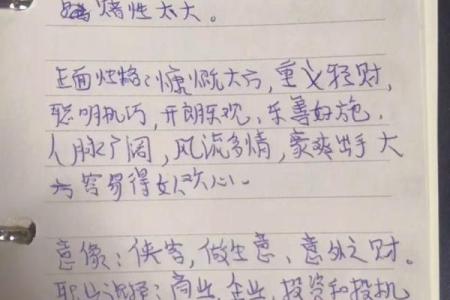 赌性太大。
正面性格:慷慨大方,重义轻财,
聪明机巧,开朗乐观、乐善好施,
人脉广阔,风流多情,豪爽出手大
方容易得女欢心。
意像:侠客,做生意、意外之财。
职业选择:商业、企业、投资和投机